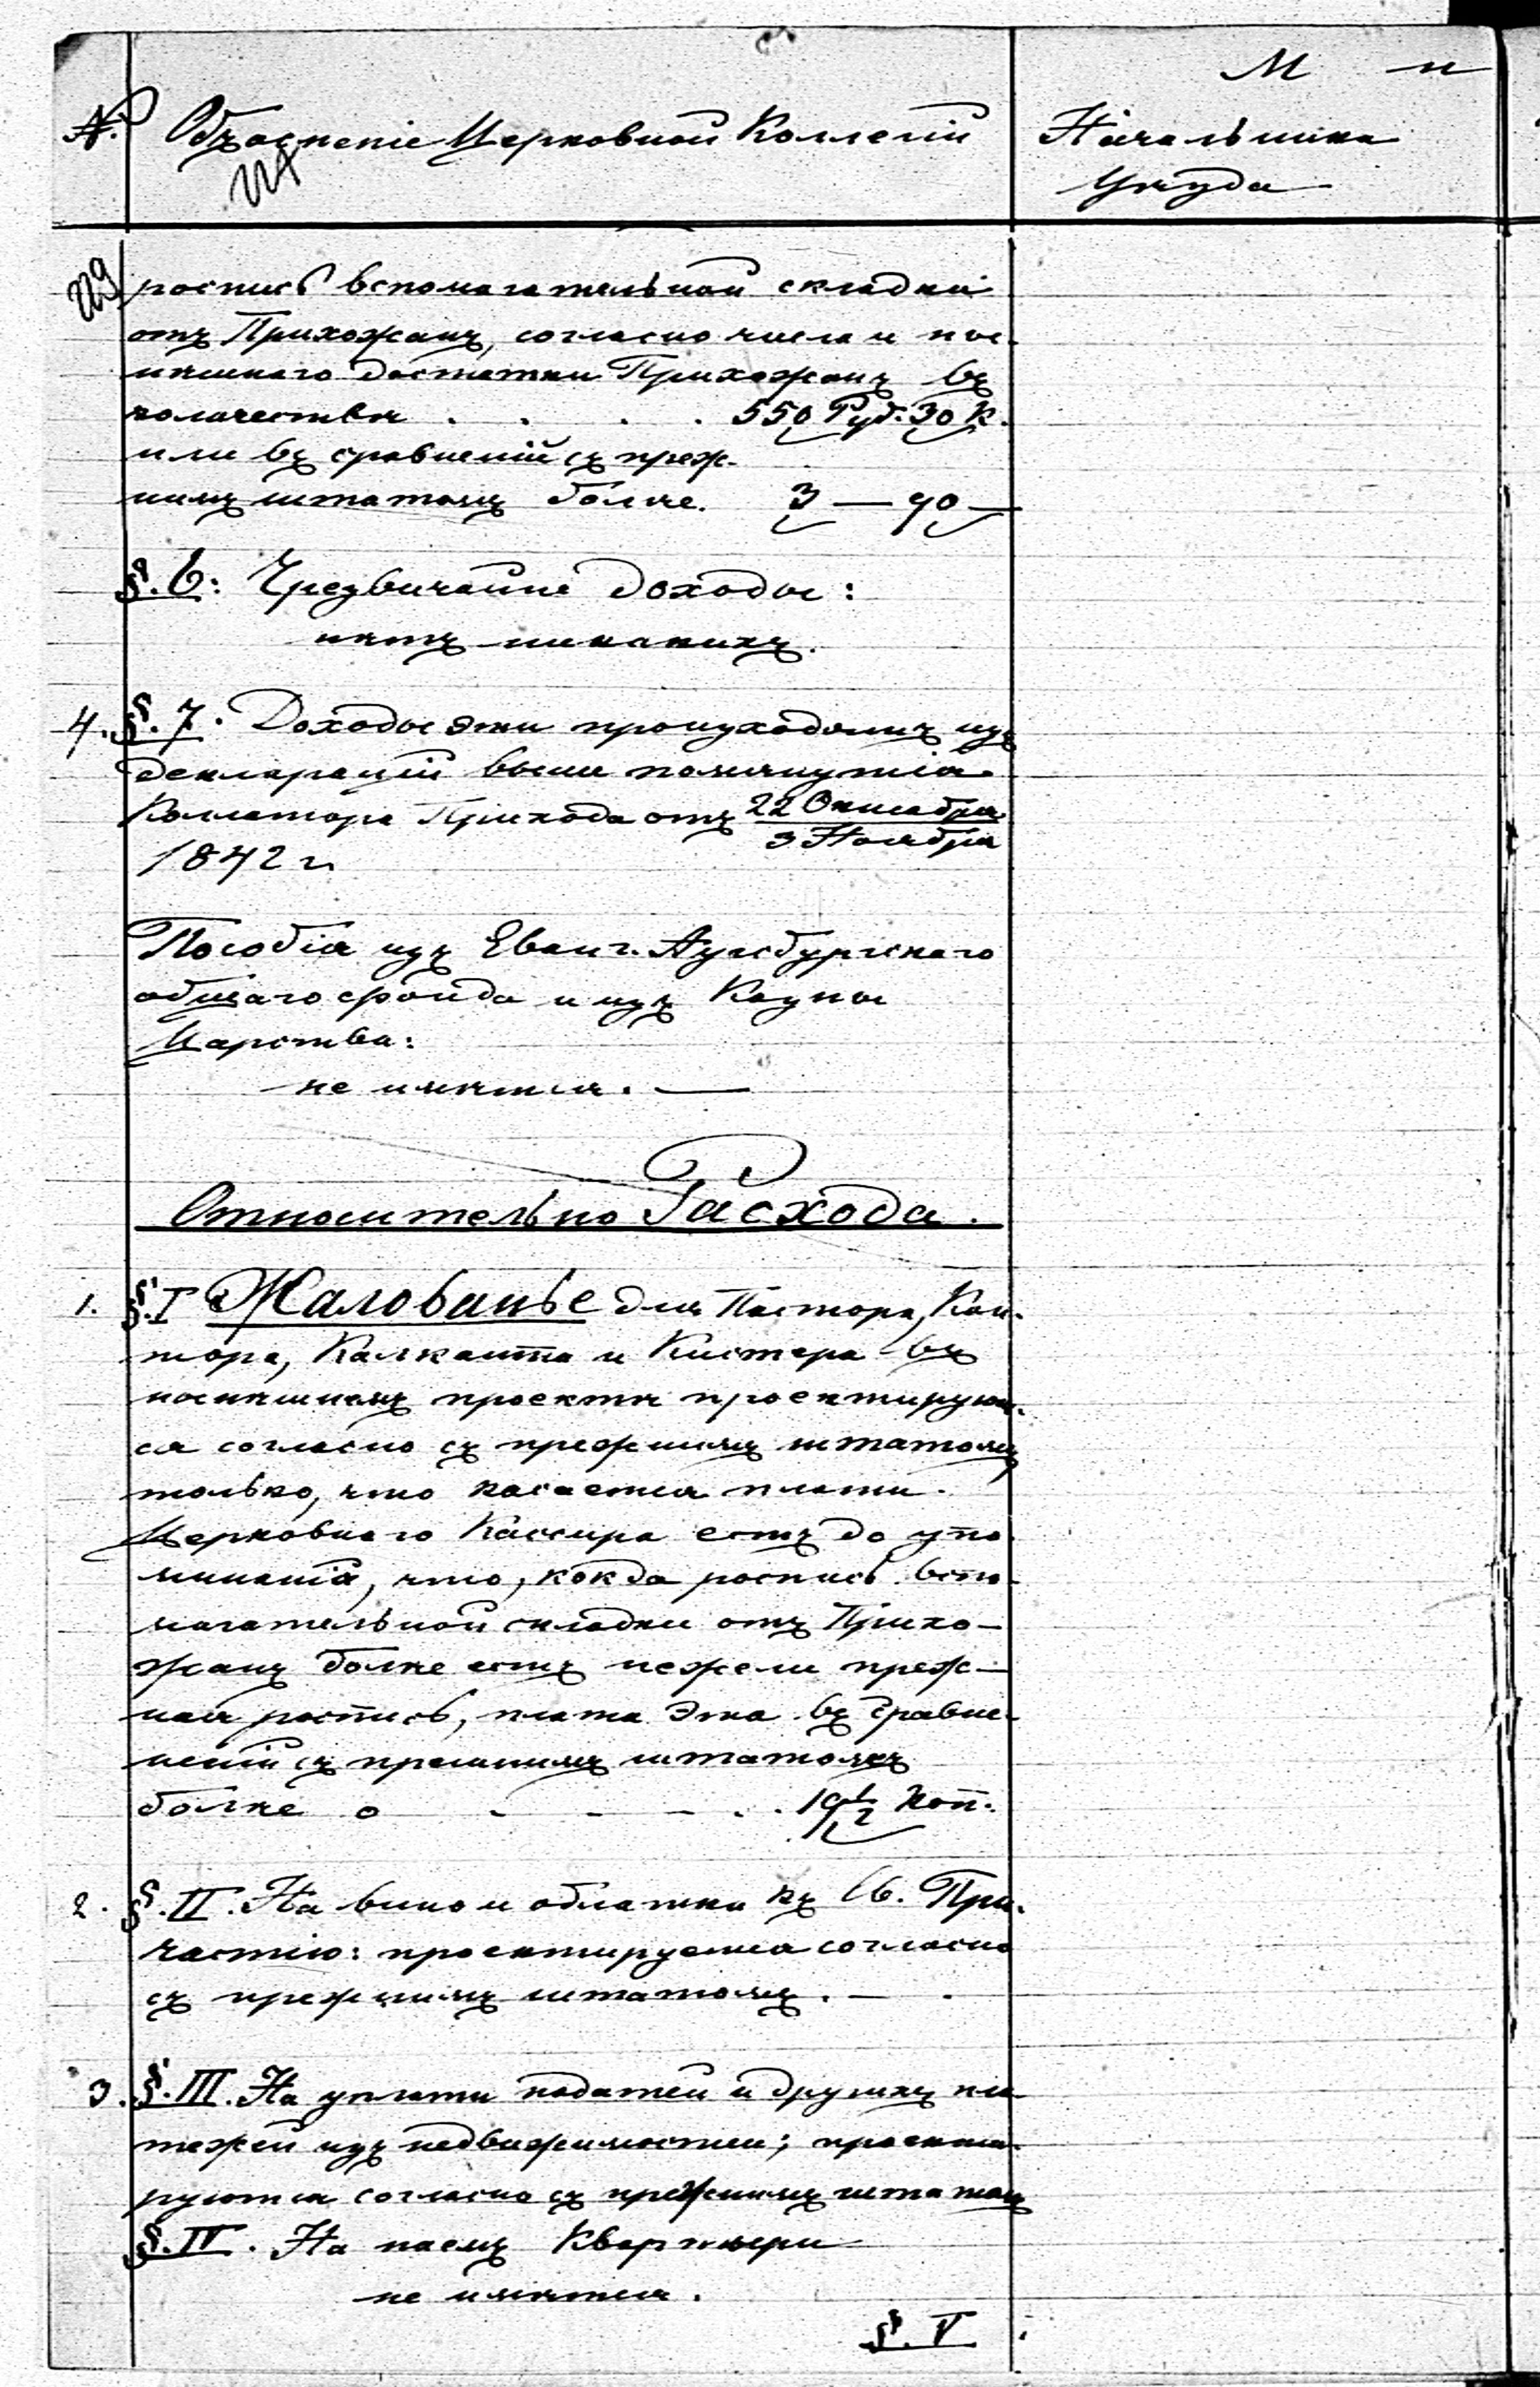 М н
№ Объясненіе Церковной Коллегіи
Начальника
Уѣзда
роспись вспомагательной складки
отъ Прихожанъ, согласно числа и ны-
нѣшнаго достатки Прихожанъ въ
количествѣ . . . . 550 Руб. 30 К.
или въ сравненій съ преж-
нимъ штатомъ болѣе. 3 — 90 —
§. 6: Чрезвичайне Доходы:
нѣтъ никакихъ.
4. §. 7. Доходы эти произходятъ изъ
декларацій выше помянутія
Коллатора Прихода отъ 22 Октября
3 Ноября
1842 г.
Пособія изъ Еванг. Аугсбургскаго
общаго фонда и изъ Казны
Царства:
не имѣтся. —
Относительно Расхода.
1. §. I Жалованье для Пастора, Кан-
тора, Калканта и Кистера въ
нынѣшнемъ проектѣ проектируют-
ся согласно съ прежнимъ штатомъ
только, что касается плати
Церковнаго Кассира естъ до упо-
минанія, что, кокда роспись вспо-
магательной складки отъ Прихо-
жанъ болѣе естъ нежели преж-
ная роспись, плата эта въ сравне-
неніи съ прежнимъ штатомъ
болѣе о - - - . . 19½ Коп.
2. §. II. На вино и облатки къ Св. При-
частію: проектируется согласно
съ прежнимъ штатомъ. — .
3. §. III. На уплати податей и другихъ пла-
тежей изъ недвижимостей; проекти-
руются согласно съ прежнимъ штатомъ
§. IV. На наемъ Квартиери
не имѣтся.
§. V